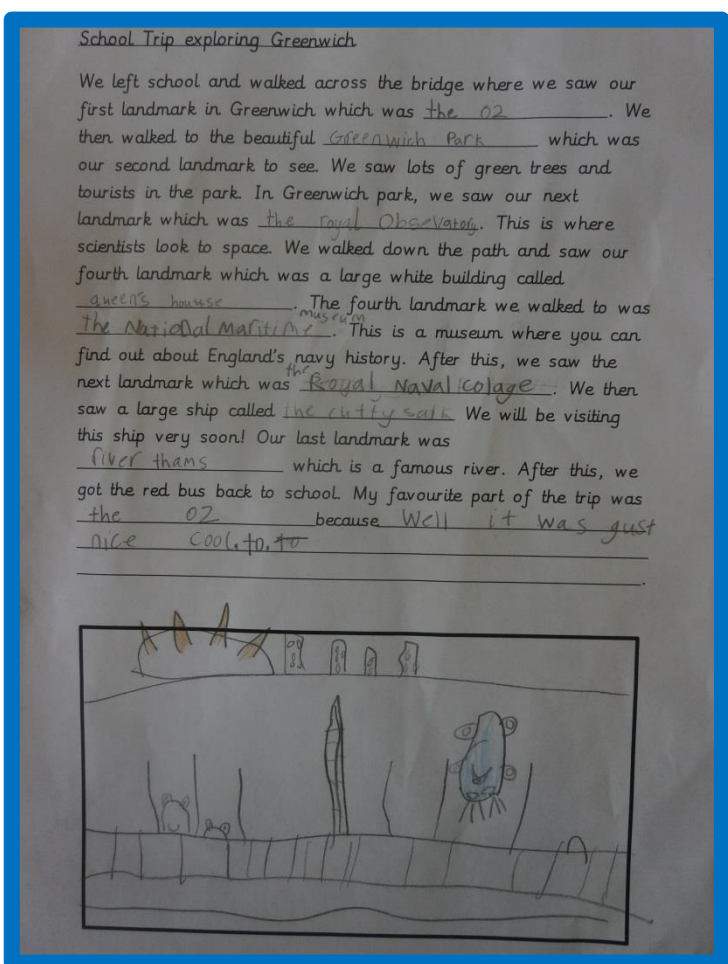 School Trip exploring Greenwich
We left school and walked across the bridge where we saw our
first landmark in Greenwich which was the 02. We
then walked to the beautiful Greenwich Park which was
our second landmark to see. We saw lots of green trees and
tourists in the park. In Greenwich park, we saw our next
landmark which was the royal Obsevatory. This is where
scientists look to space. We walked down the path and saw our
fourth landmark which was a large white building called
queen's houuse. The fourth landmark we walked to was
the National Maritime museum. This is a museum where you can
find out about England's navy history. After this, we saw the
next landmark which was the Royal Naval colage. We then
saw a large ship called the cutty sark We will be visiting
this ship very soon! Our last landmark was
river thams which is a famous river. After this, we
got the red bus back to school. My favourite part of the trip was
the 02 because Well it was gust
nice cool. to. to